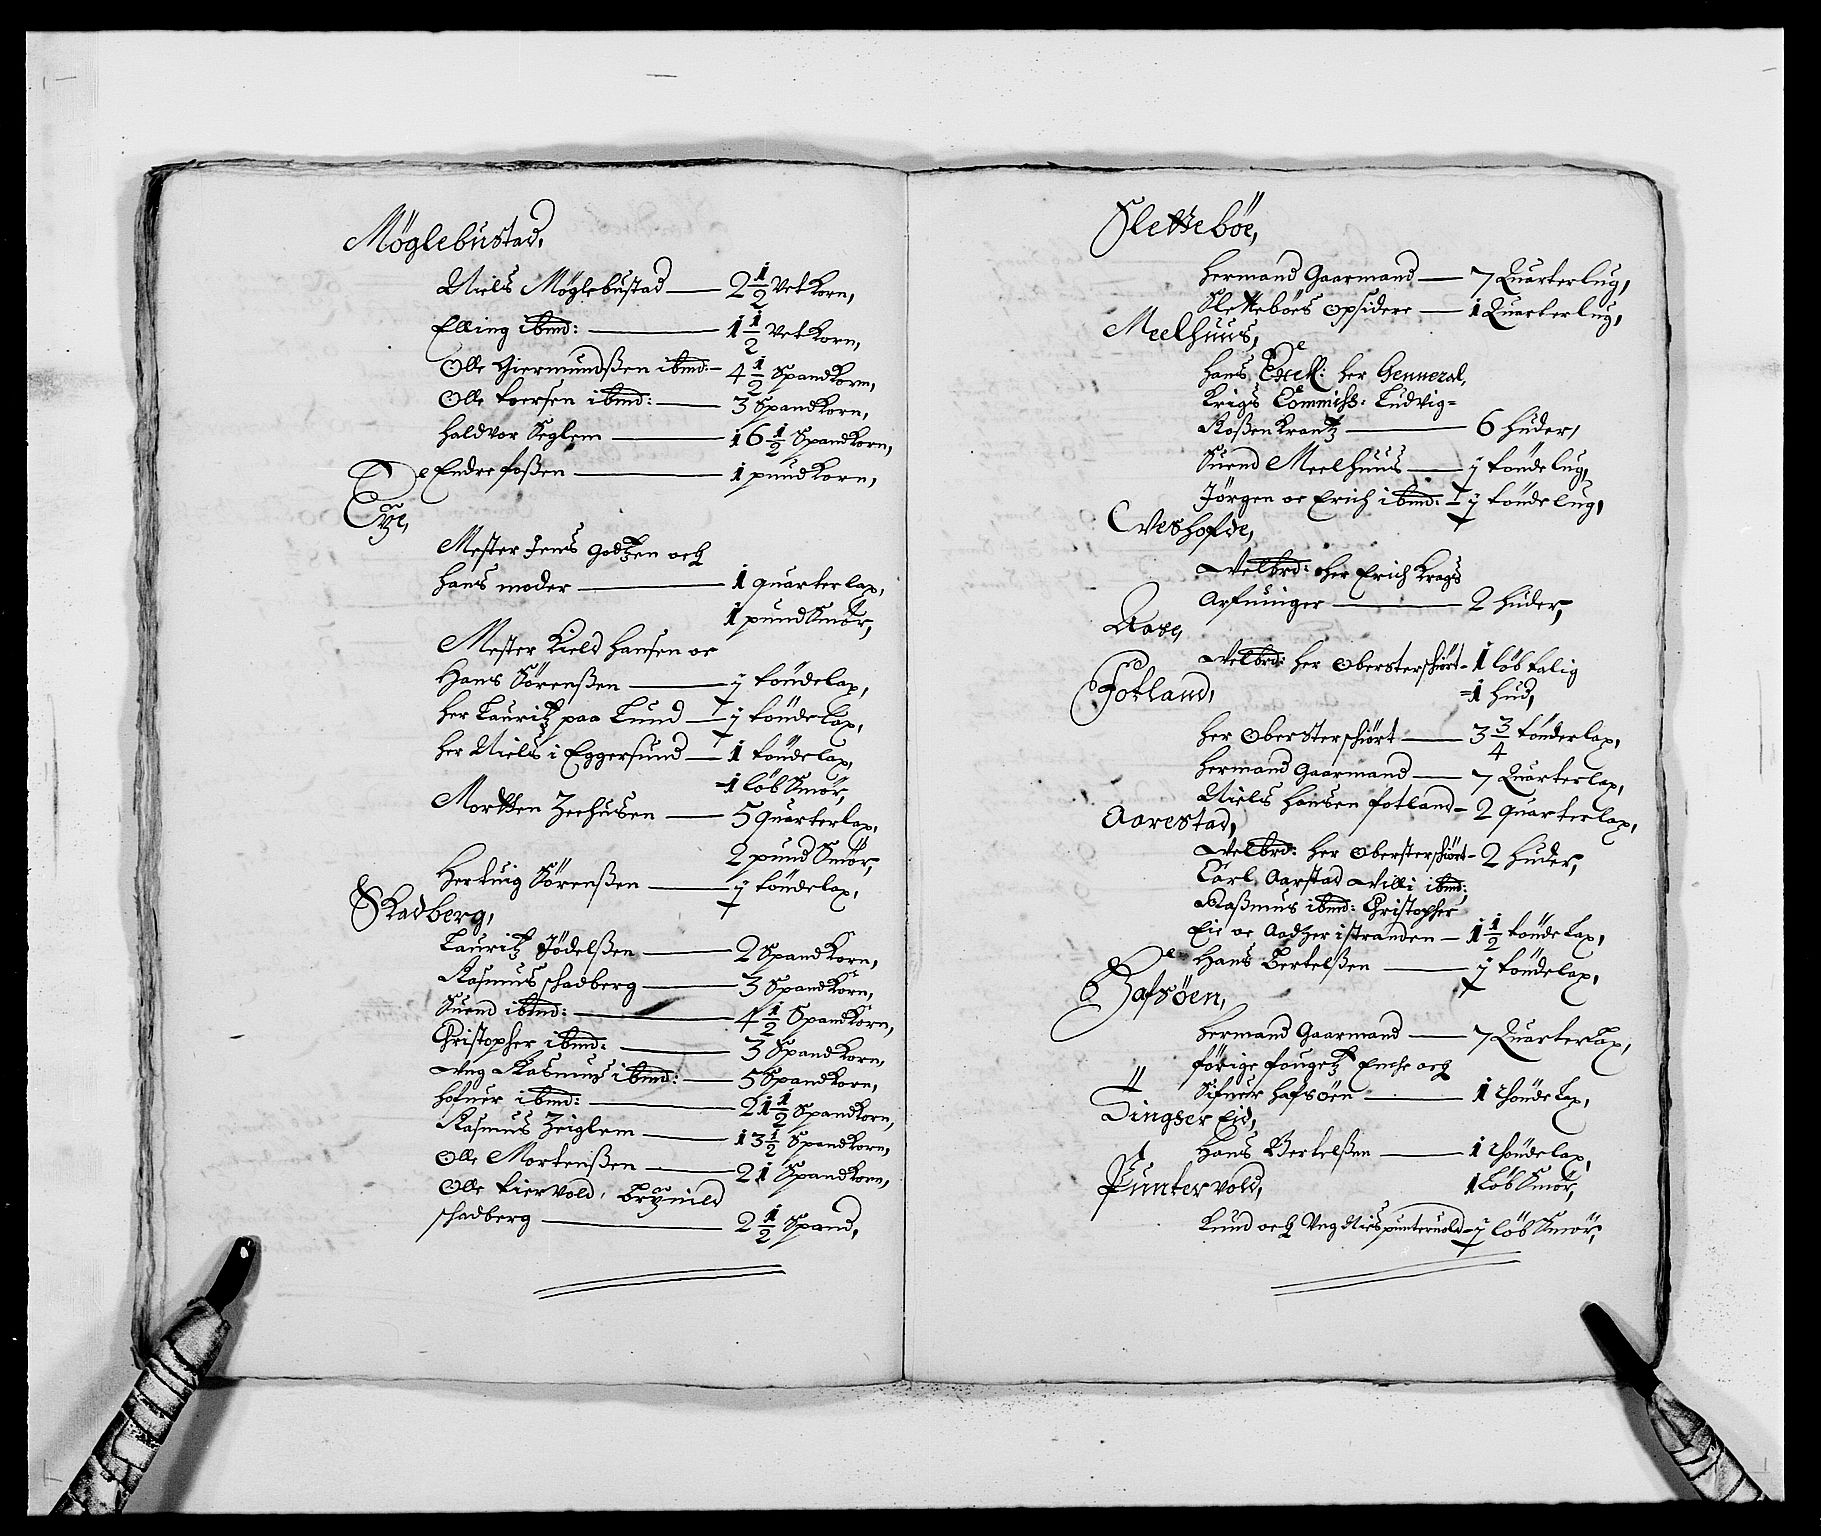 Möglebustad,
Niels Möglebustad — 2 1/2 Vet Korn,
Elling ibmd: — 1 1/2 Vet Korn,
Olle Giermundßen ibmd: — 4 1/2 Spand Korn,
Olle Torsen ibmd: — 3 Spand Korn,
Haldvor Seglem — 16 1/2 Spand Korn,
Endre foßen — 1 pund Korn,
Mester Jens Godtzen och
hans moder — 1 quarter lax,
1 pund Smör,
Mester Kield Hansen oc
Hans Sörenßen — ÿ tönde lax,
her Lauritz paa Lund — ÿ tönde lax,
her Niels i Eggersund — 1 tönde lax,
1 löb Smör,
Mortten Zeehusen — 5 quarter lax,
2 pund Smör,
Hertuig Sörenßen — ÿ tönde lax,
Skadberg,
Lauritz Jödelßen — 2 Spand Korn,
Rasmus schadberg — 3 Spand Korn,
Suend ibmd: — 4 1/2 Spand Korn,
Christopher ibmd: — 3 Spand Korn,
Ung Rasmus ibmd: — 5 Spand Korn,
ibmd: — 21 1/2 Spand Korn,
Rasmus Zeiglem — 13 1/2 Spand Korn,
Olle Mortenßen — 21 Spand Korn,
Olle Tiervold, Brÿnild
schadberg — 2 1/2 Spand,
Sletteböe,
Hermand Gaarmand — 7 Quarter lug,
Sletteböes opsidere — 1 Quarter lug,
Meelhuus,
Hans Excell: her Genneral
Krigs Commiss: Ludvig
Roßenkrantz — 6 huder,
Suend Meelhuus — ÿ tönde lug,
Jörgen oc Erich ibmd: — ÿ tönde lug,
Velbrd: her Erich Krags
Arfuinger — 2 huder,
Aase,
Velbrd: her Oberster schiört — 1 löb talig
1 hud,
Fotland,
her Oberster schiört — 3 3/4 tönder lax,
Hermand Gaarmand — 7 Quarter lax,
Niels Hansen fotland — 2 quarter lax,
Aarestad,
Velbrd: her Oberster schiört — 2 huder,
Carl Aarstad Villi ibmd:
Raßmus ibmd: Christopher
Eie oc Aadzer i stranden — 1 1/2 tönde lax,
Hans Bertelßen — ÿ tönde lax,
Hafsöen,
Hermand Gaarmand — 7 Quarter lax,
förige fougetz Enche och
Sifuer Hafsöen — 1 thönde lax,
Tingser Eid,
Hans Bertelßen — 1 thönde lax,
1 Löb Smör,
Puntervold,
Knud och Ung Nies puntervold — ÿ löb Smör,